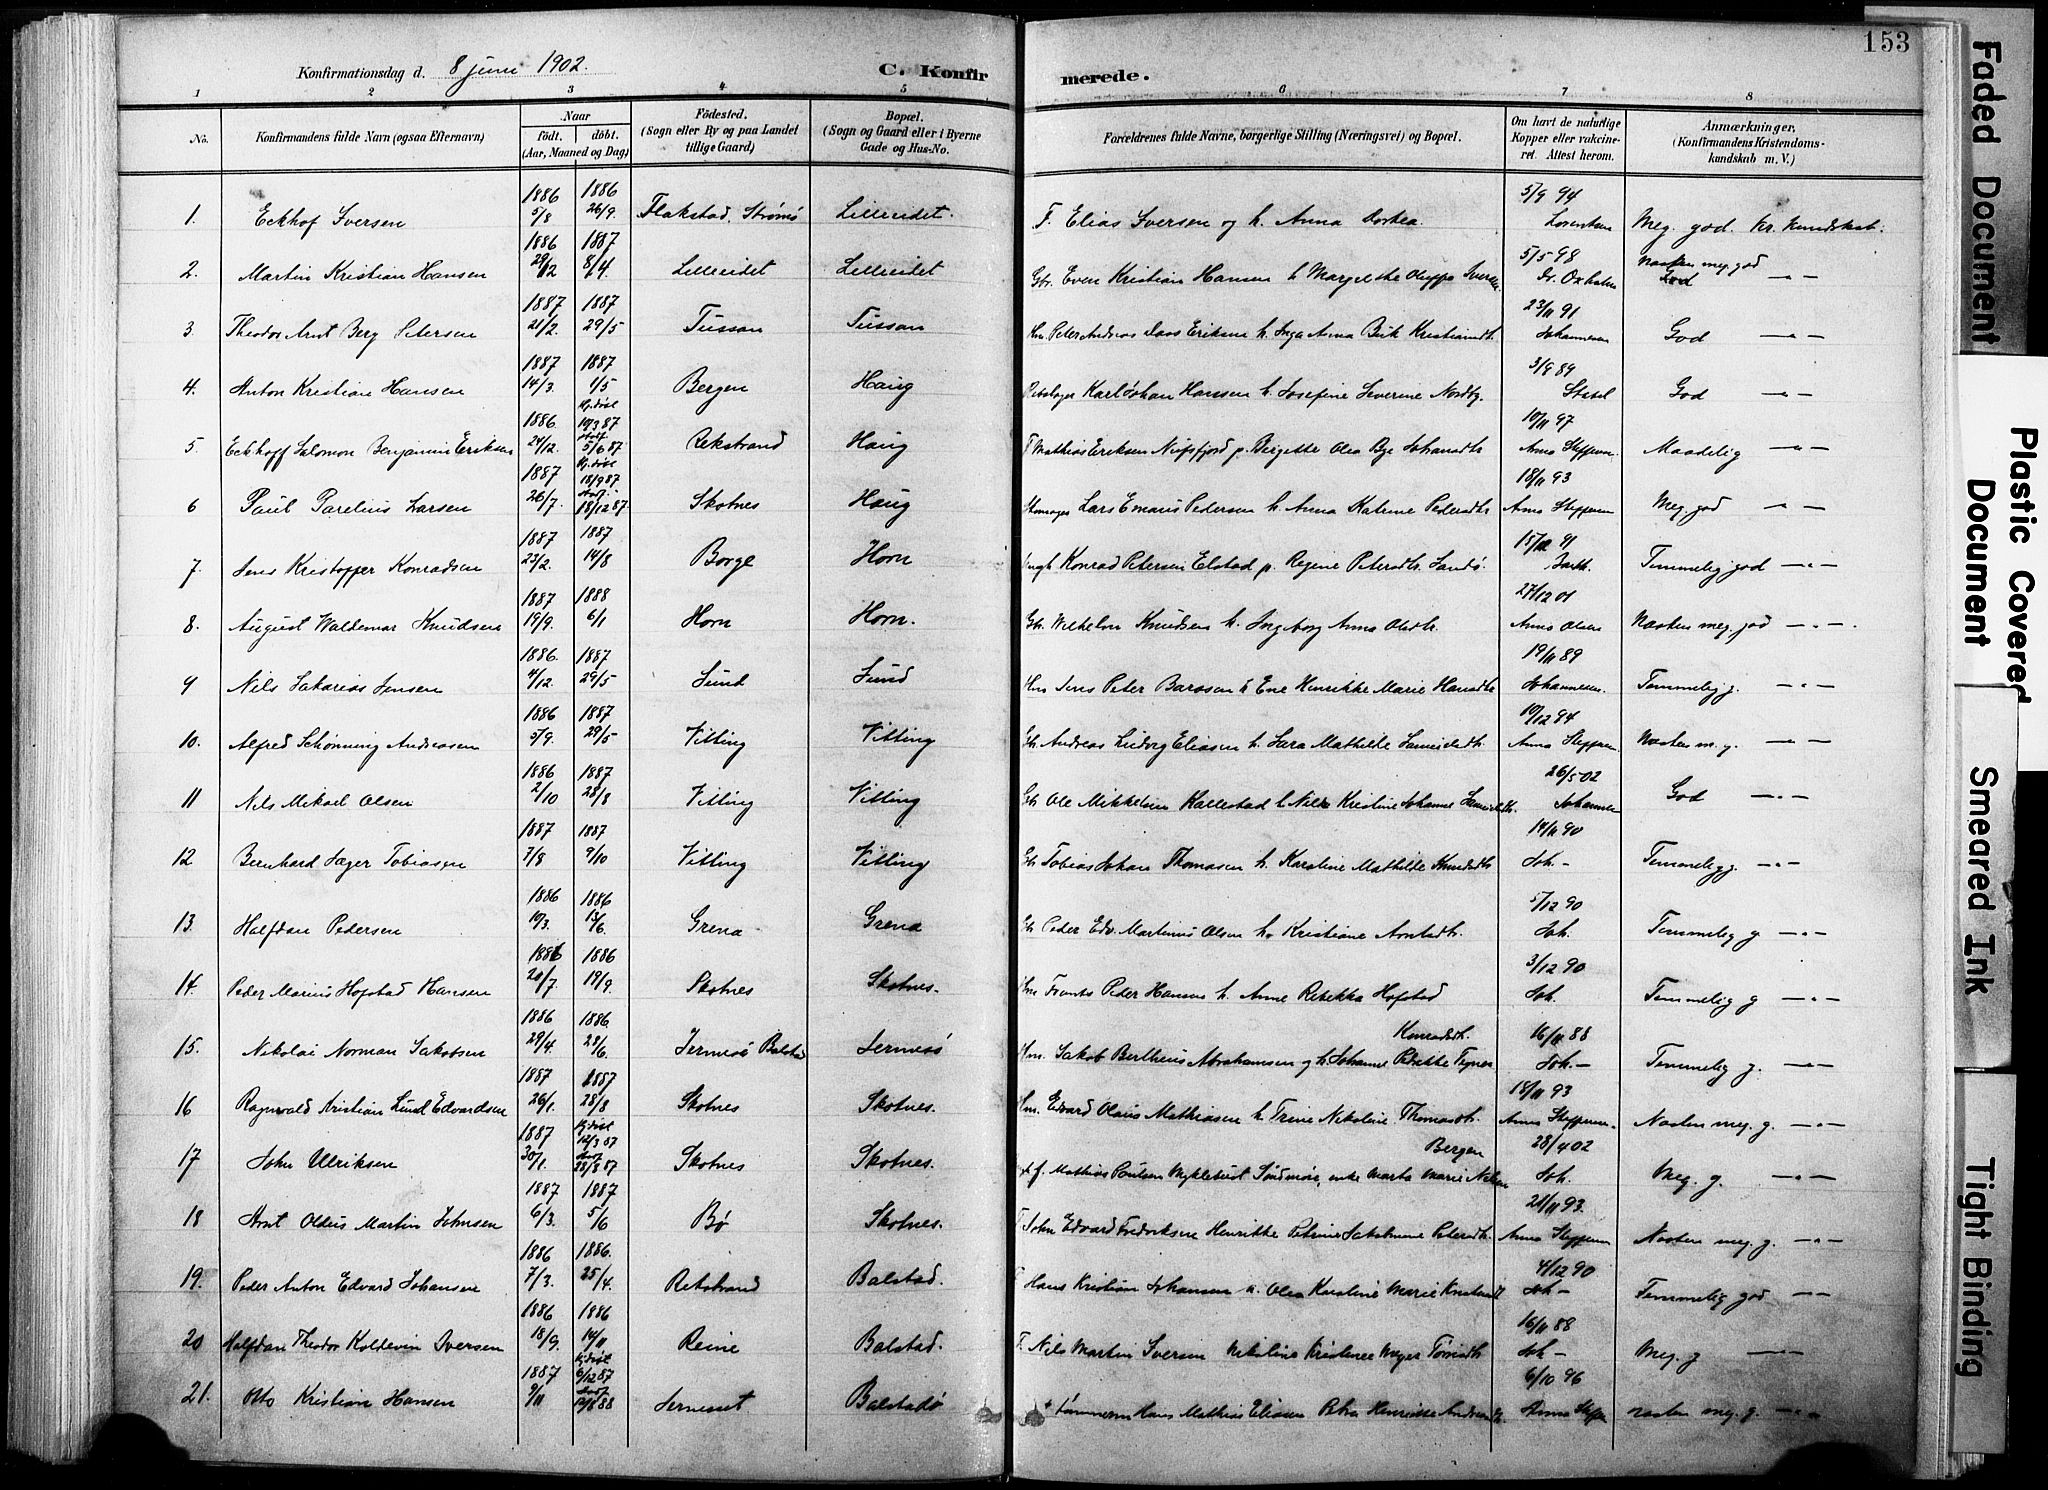 153
Konfirmationsdag d. 8 juni 1902. C. Konfirmerede.
1 2 3 4 5 6 7 8
No. Konfirmandens fulde Navn (ogsaa Efternavn) Naar Født. døbt. (Aar, Maaned og Dag) Fødested. (Sogn eller By og paa Landet tillige Gaard) Bopæl. (Sogn og Gaard eller i Byerne Gade og Hus-No. Forældrenes fulde Navne, borgerlige Stilling (Næringsvei) og Bopæl. Om havt de naturlige Kopper eller vakcineret. Attest herom. Anmærkninger, (Konfirmandens Kristendomskundskab m. V.)
1. Eckhof Iversen 1886 5/8 1886 26/9. Flakstad. Strømø Lilleeidet. F. Elias Iversen og h. Anna Dortea 5/9 94 Meg. god kr. kundskab.
2. Martin Kristian Hansen 1886 29/12 1887 8/4. Lilleeidet Lilleeidet Gbr. Even Kristian Hansen h. 5/5 98 Næsten meg. god
3. Theodor Arnt Berg Petersen 1887 21/2. 1887 29/5 Tussan Tussan Hm. Peter Andreas Eriksen h. Inga Anna 23/11 91 Johannesen God
4. Anton Kristian Hansen 1887 14/3. 1887 1/5 Bergen Haug Karl Johan Hanssen h. Josefine Severine 3/9 89 God
5. Eckhoff Salomon Benjamin Eriksen 1886. 24/12. Hj.døbt 10/3 87 5/6 87 Rekstrand Haug F Mathias Eriksen p. Bergitte Olea 10/11 97 Anna Steffensen Maadelig
6 Paul Parelius Larsen 1887 26/7. Hj.døbt 18/9 87 18/12 87. Skotnes Haug Lars Emanus Pedersen h. Anna Katrine Pedersdtr 18/11 93 Anna Steffensen Meg. god
7. Jens Kristoffer Konradsen 1887 23/2. 1887 14/8 Borge Horn Ungk Konrad Petersen Elstad p. Regine Petersdtr. Sandø. 15/12 91 Temmelig god
8. August Waldemar Knudsen 1887 19/9. 1888 6/1 Horn Horn. Gbr. Wilhelm Knudsen h. Ingeborg Anna Olsdtr. 27/12 01 Anna Olsen Næsten meg. god
9 Nils Sakarias Jensen 1886. 4/12. 1887 29/5 Sund Sund Hm Jens Peter h. Ene Henrikke Marie Hansdtr 19/11 89 Johannesen. Temmelig g.
10. Alfred Schønning Andreasen 1886 5/9. 1887 29/5 Vitting Vitting Gbr. Andreas Ludvig Eliasen h. Sara Mathilde 10/12 94 Anna Steffensen Næsten m. g.
11 Nils Mikael Olsen 1886 2/10 1887 28/8 Vitting Vitting Gbr. Ole Mikkelsen Kallestad h. Kristine Johanne 26/5 02 Johannesen God
12 Bernhard Jæger Tobiassen 1887 7/8 1887 9/10 Vitting Vitting Gbr Tobias Johan Thomasen h. Karoline Mathilde Knudsdtr 14/11 90 Joh. - Temmelig g.
13. Halfdan Pedersen 1886 10/3. 1886 13/6. Grena Grena Gbr Peder Edv. Martinus Olsen h. Kristiane Arntsdtr. 5/12 90 Joh. Temmelig g
14. Peder Marius Hofstad Hansen 1886 20/7. 1886 19/9. Skotnes Skotnes. Hm Frants Peder Hansen h. Anne Rebekka Hofstad 3/12 90 Joh. Temmelig g
15. Nikolai Norman Jakobsen 1886 29/4. 1886. 28/6. Balstad Hm. Jakob Berthius Abrahamsen og h. Johanne Petrikke Konradsdtr. 16/11 88 Joh. - Temmelig g.
16 Ragnvald Kristian Lund Edvardsen 1887 26/1. 1887 28/8 Skotnes Skotnes. Hm. Edvard Olaus Mathiasen h. Trine Nikoline Thomasdtr. 18/11 93 Anna Steffensen. Næsten meg. g.
17 John Ulriksen 1887 30/1. Hj.døbt 12/3 87 28/8 87 Skotnes Skotnes. f. Mathias Poulsen Myklebust Søndmøre, enke Marta Marie Nilsen Bergen 28/4 02 Joh. Meg. g.
18 Arnt Oldus Martin Johnsen 1887 6/3. 1887 5/6 Bø Skotnes. F John Edvard Fredriksen Henrikke Petrine Jakobine Petersdtr. 21/11 93. Anna Steffensen Næsten meg. g.
19. Peder Anton Edvard Johansen 1886 7/3. 1886. 25/4. Rekstrand Balstad. F Hans Kristian Johansen Olea Karoline Marie 4/12 90 Joh - Temmelig god
20 Halfdan Theodor Koldevin Iversen 1886 18/9. 1886 14/11 Reine Balstad. F Nils Martin Iversen Nikoline Kristense Meyer 16/11 88 Joh - Meg. g
21. Otto Kristian Hansen 1887 9/11 Hj.døbt 6/12 87 Balstadø Hans Mathias Eliasen Petra Henriette 6/10 96 Anna Steffen næsten meg. g.
Faded Document
Plastic Covered Document
Smeared Ink
Tight Binding